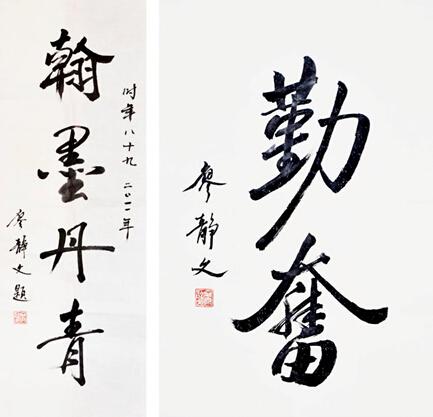 翰墨丹青
时年八十九 二〇一一年
廖静文题
勤奋
廖静文